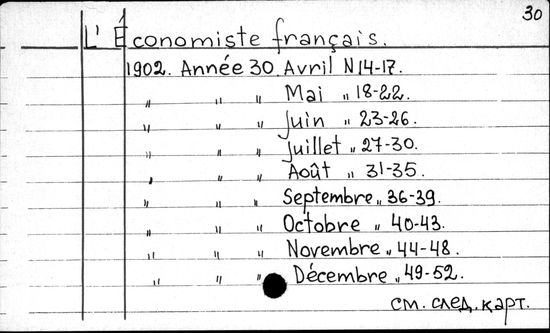 30
L'Économiste français.
1902. Année 30. Avril N 14-17.
„ „ „ Mai „ 18-22.
„ „ „ Juin „ 23-26.
„ „ „ Juillet „ 27-30.
„ „ „ Août „ 31-35.
„ „ „ Septembre „ 36-39.
„ „ „ Octobre „ 40-43.
„ „ „ Novembre „ 44-48.
„ „ „ Décembre „ 49-52.
см. след. карт.